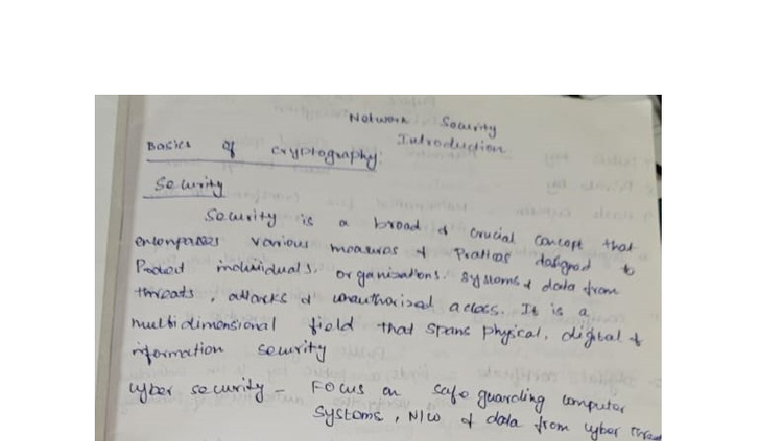 Network Security
Introduction
Basics of cryptography:
Security
Security is a broad & crucial concept that
encompasses various measures & Pratices designed to
Proted individuals, organisations, systems & data from
threats, attacks & unauthorized access. It is a
multidimensional field that spans physical, digital &
information security
cyber security - Focus on safe guarding computer
systems, N/w & data from cyber